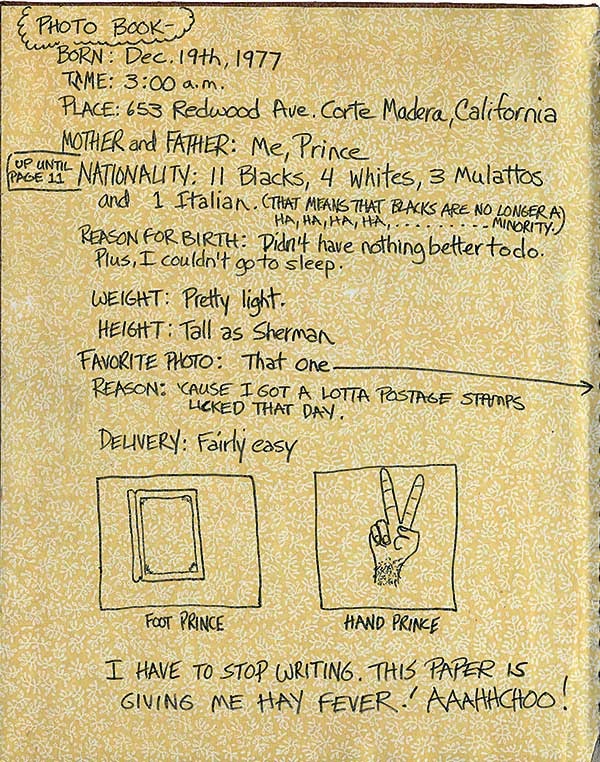 PHOTO BOOK-
BORN: Dec. 19th, 1977
TIME: 3:00 a.m.
PLACE: 653 Redwood Ave. Corte Madera, California
MOTHER and FATHER: Me, Prince
UP UNTIL
PAGE 11
NATIONALITY: 11 Blacks, 4 Whites, 3 Mulattos
and 1 Italian. (THAT MEANS THAT BLACKS ARE NO LONGER A
HA, HA, HA, HA, . . . . . . . . . MINORITY.)
REASON FOR BIRTH: Didn't have nothing better to do.
Plus, I couldn't go to sleep.
WEIGHT: Pretty light.
HEIGHT: Tall as Sherman
FAVORITE PHOTO: That one
REASON: 'CAUSE I GOT A LOTTA POSTAGE STAMPS
LICKED THAT DAY.
DELIVERY: Fairly easy
FOOT PRINCE
HAND PRINCE
I HAVE TO STOP WRITING. THIS PAPER IS
GIVING ME HAY FEVER! AAAHHCHOO!